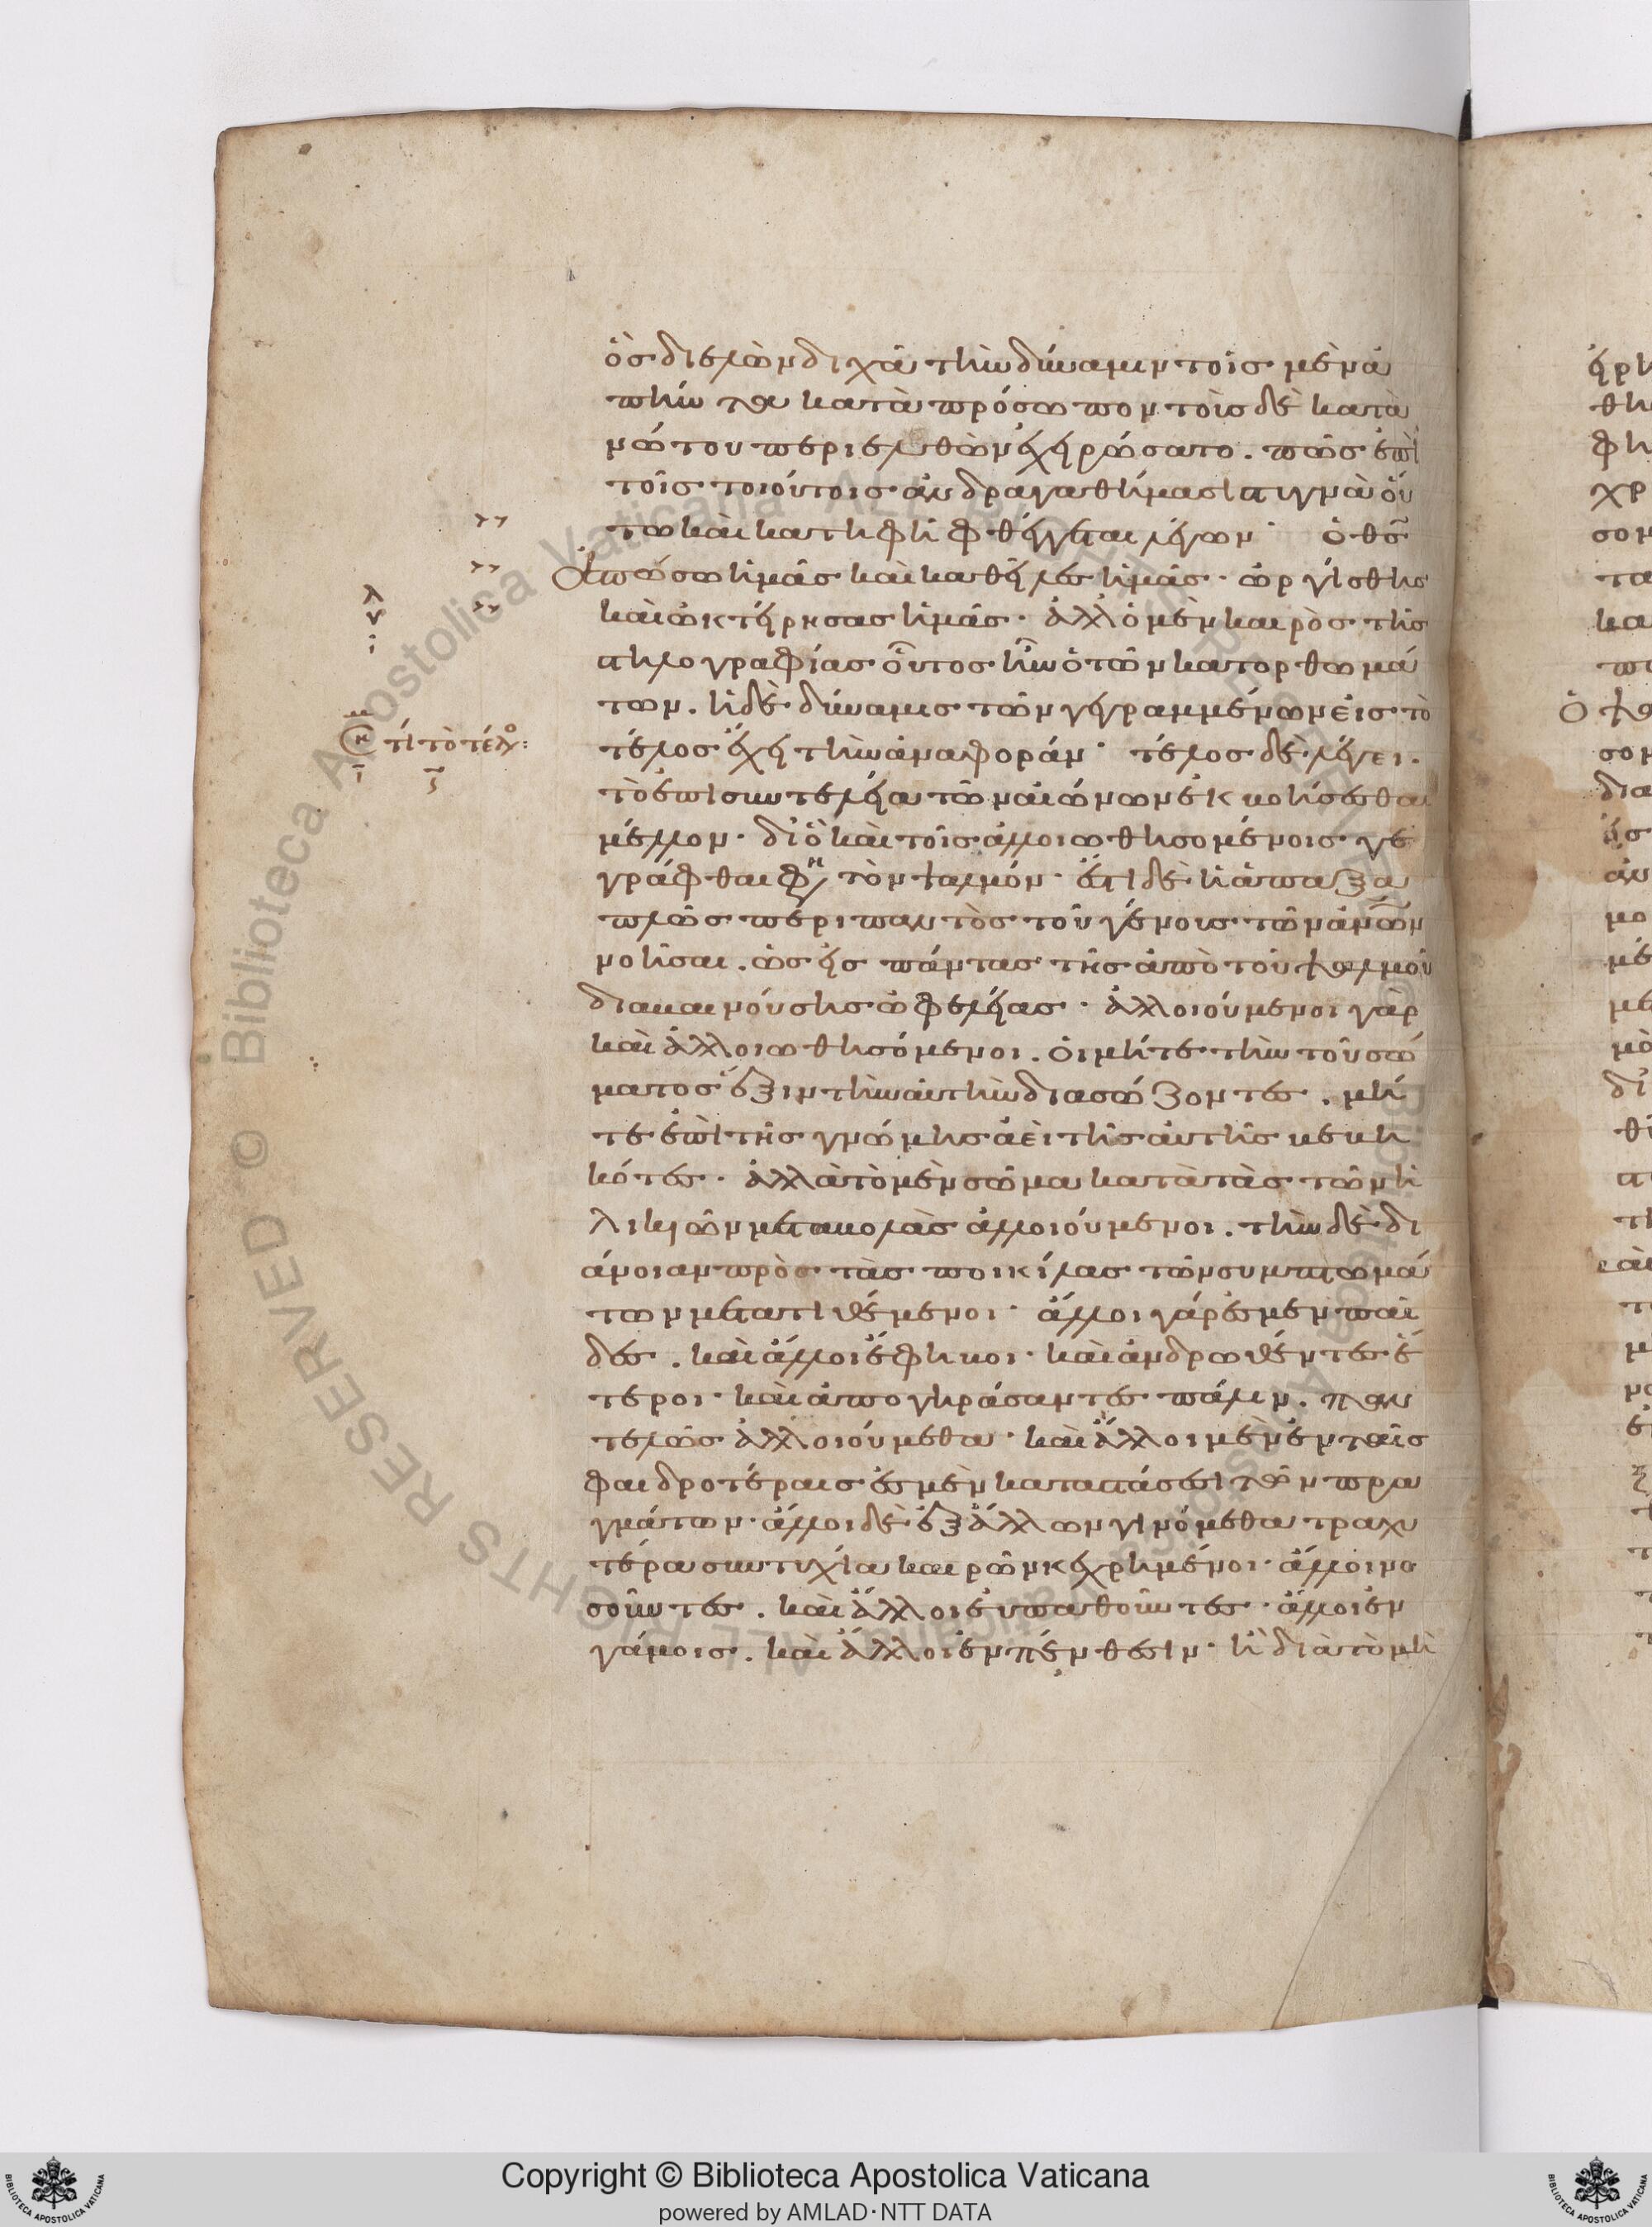 ὃς διελὼν διχᾶ τὴν δύναμιν τοῖς μὲν ἀ
πὴν τα κατὰ πρόσωπον τοῖς δὲ κατὰ
νώτου περιελθὼν ἐχειρώσατο. πῶς ἐπὶ
τοῖς τοιούτοις ἀνδραγαθήμασι στιγμὰ οὕ
τω καὶ κατηφῆ φθέγγεται λέγων· ὁ θς
ἀπώσω ἡμᾶς καὶ καθεῖλες ἡμᾶς· ὠργίσθης
καὶ ὠκτείρησας ἡμᾶς· ἀλλ ὁ μὲν καιρὸς τῆς
στηλογραφίας οὗτος ἦν ὁ τῶν κατορθωμά
των. ἡ δὲ δύναμις τῶν γεγραμμένων εἰς τὸ
τί τὸ τέλο:
τέλος ἔχει τὴν ἀναφοράν· τέλος δὲ λέγει.
τὸ ἐπὶ συντελεία τῶν αἰώνων ἐκβολίσεσθαι
μέλλον· διὸ καὶ τοῖς ἀλλοιωθησομένοις γε
γράφθαι φη τὸν ψαλμόν· ἔτι δὲ ἡ ἅπαξ ἁ
πλῶς περὶ παντὸς τοῦ γένους τῶν ἀνων
νοῆσαι. ὡς εἰς πάντας τῆς ἀπὸ τοῦ ψαλμοῦ
διαβαινούσης ὠφελείας· ἀλλοιούμενοι γὰρ
καὶ ἀλλοιωθησόμενοι. οἱ μήτε τὴν τοῦ σώ
ματος ἕξιν τὴν αὐτὴν διασώζοντες. μή
τε ἐπὶ τῆς γνώμης ἀεὶ τῆς αὐτῆς βεβη
κότες· ἀλλὰ τὸ μὲν σῶμα κατὰ τὰς τῶν ἡ
λικιῶν μεταβολὰς ἀλλοιούμενοι. τὴν δὲ δι
άνοιαν πρὸς τὰς ποικίλας τῶν συμπτωμά
των μετατιθέμενοι· ἄλλοι γάρ ἐσμεν παῖ
δες. καὶ ἄλλοι ἔφηβοι· καὶ ἀνδρωθέντες ἕ
τεροι· καὶ ἀπογηράσαντες πάλιν. παν
τελῶς ἀλλοιούμεθα· καὶ ἄλλοι μὲν ἐν ταῖς
φαιδροτέραις ἐσμὲν καταστάσεσι τῶν πρα
γμάτων· ἄλλοι δὲ ἐξ ἄλλων γινόμεθα τραχυ
τέρα συντυχία καιρῶν κεχρημένοι· ἄλλοι νο
σοῦντες. καὶ ἄλλοι εὐπαθοῦντες· ἄλλοι ἐν
γάμοις. καὶ ἄλλοι ἐν πένθεσιν· ἢ διὰ τὸ μὴ
Copyright © Biblioteca Apostolica Vaticana
powered by AMLAD·NTT DATA